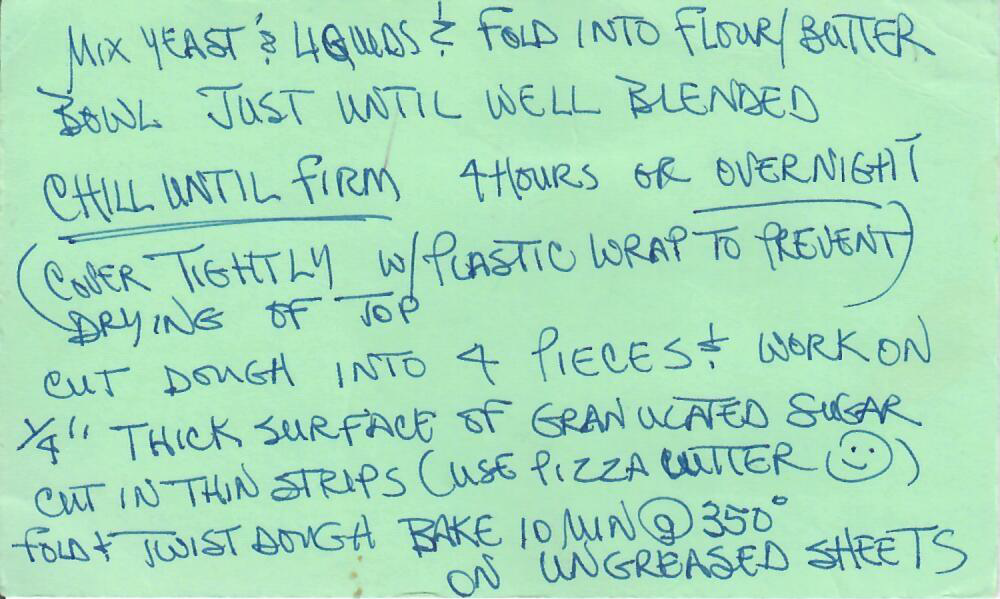 MIX YEAST & LIQUIDS & FOLD INTO FLOUR/BUTTER
BOWL JUST UNTIL WELL BLENDED
CHILL UNTIL FIRM 4 HOURS OR OVERNIGHT
(COVER TIGHTLY W/PLASTIC WRAP TO PREVENT
DRYING OF TOP)
CUT DOUGH INTO 4 PIECES & WORK ON
1/4" THICK SURFACE OF GRANULATED SUGAR
CUT IN THIN STRIPS (USE PIZZA CUTTER ☺)
FOLD & TWIST DOUGH BAKE 10 MIN @ 350°
ON UNGREASED SHEETS